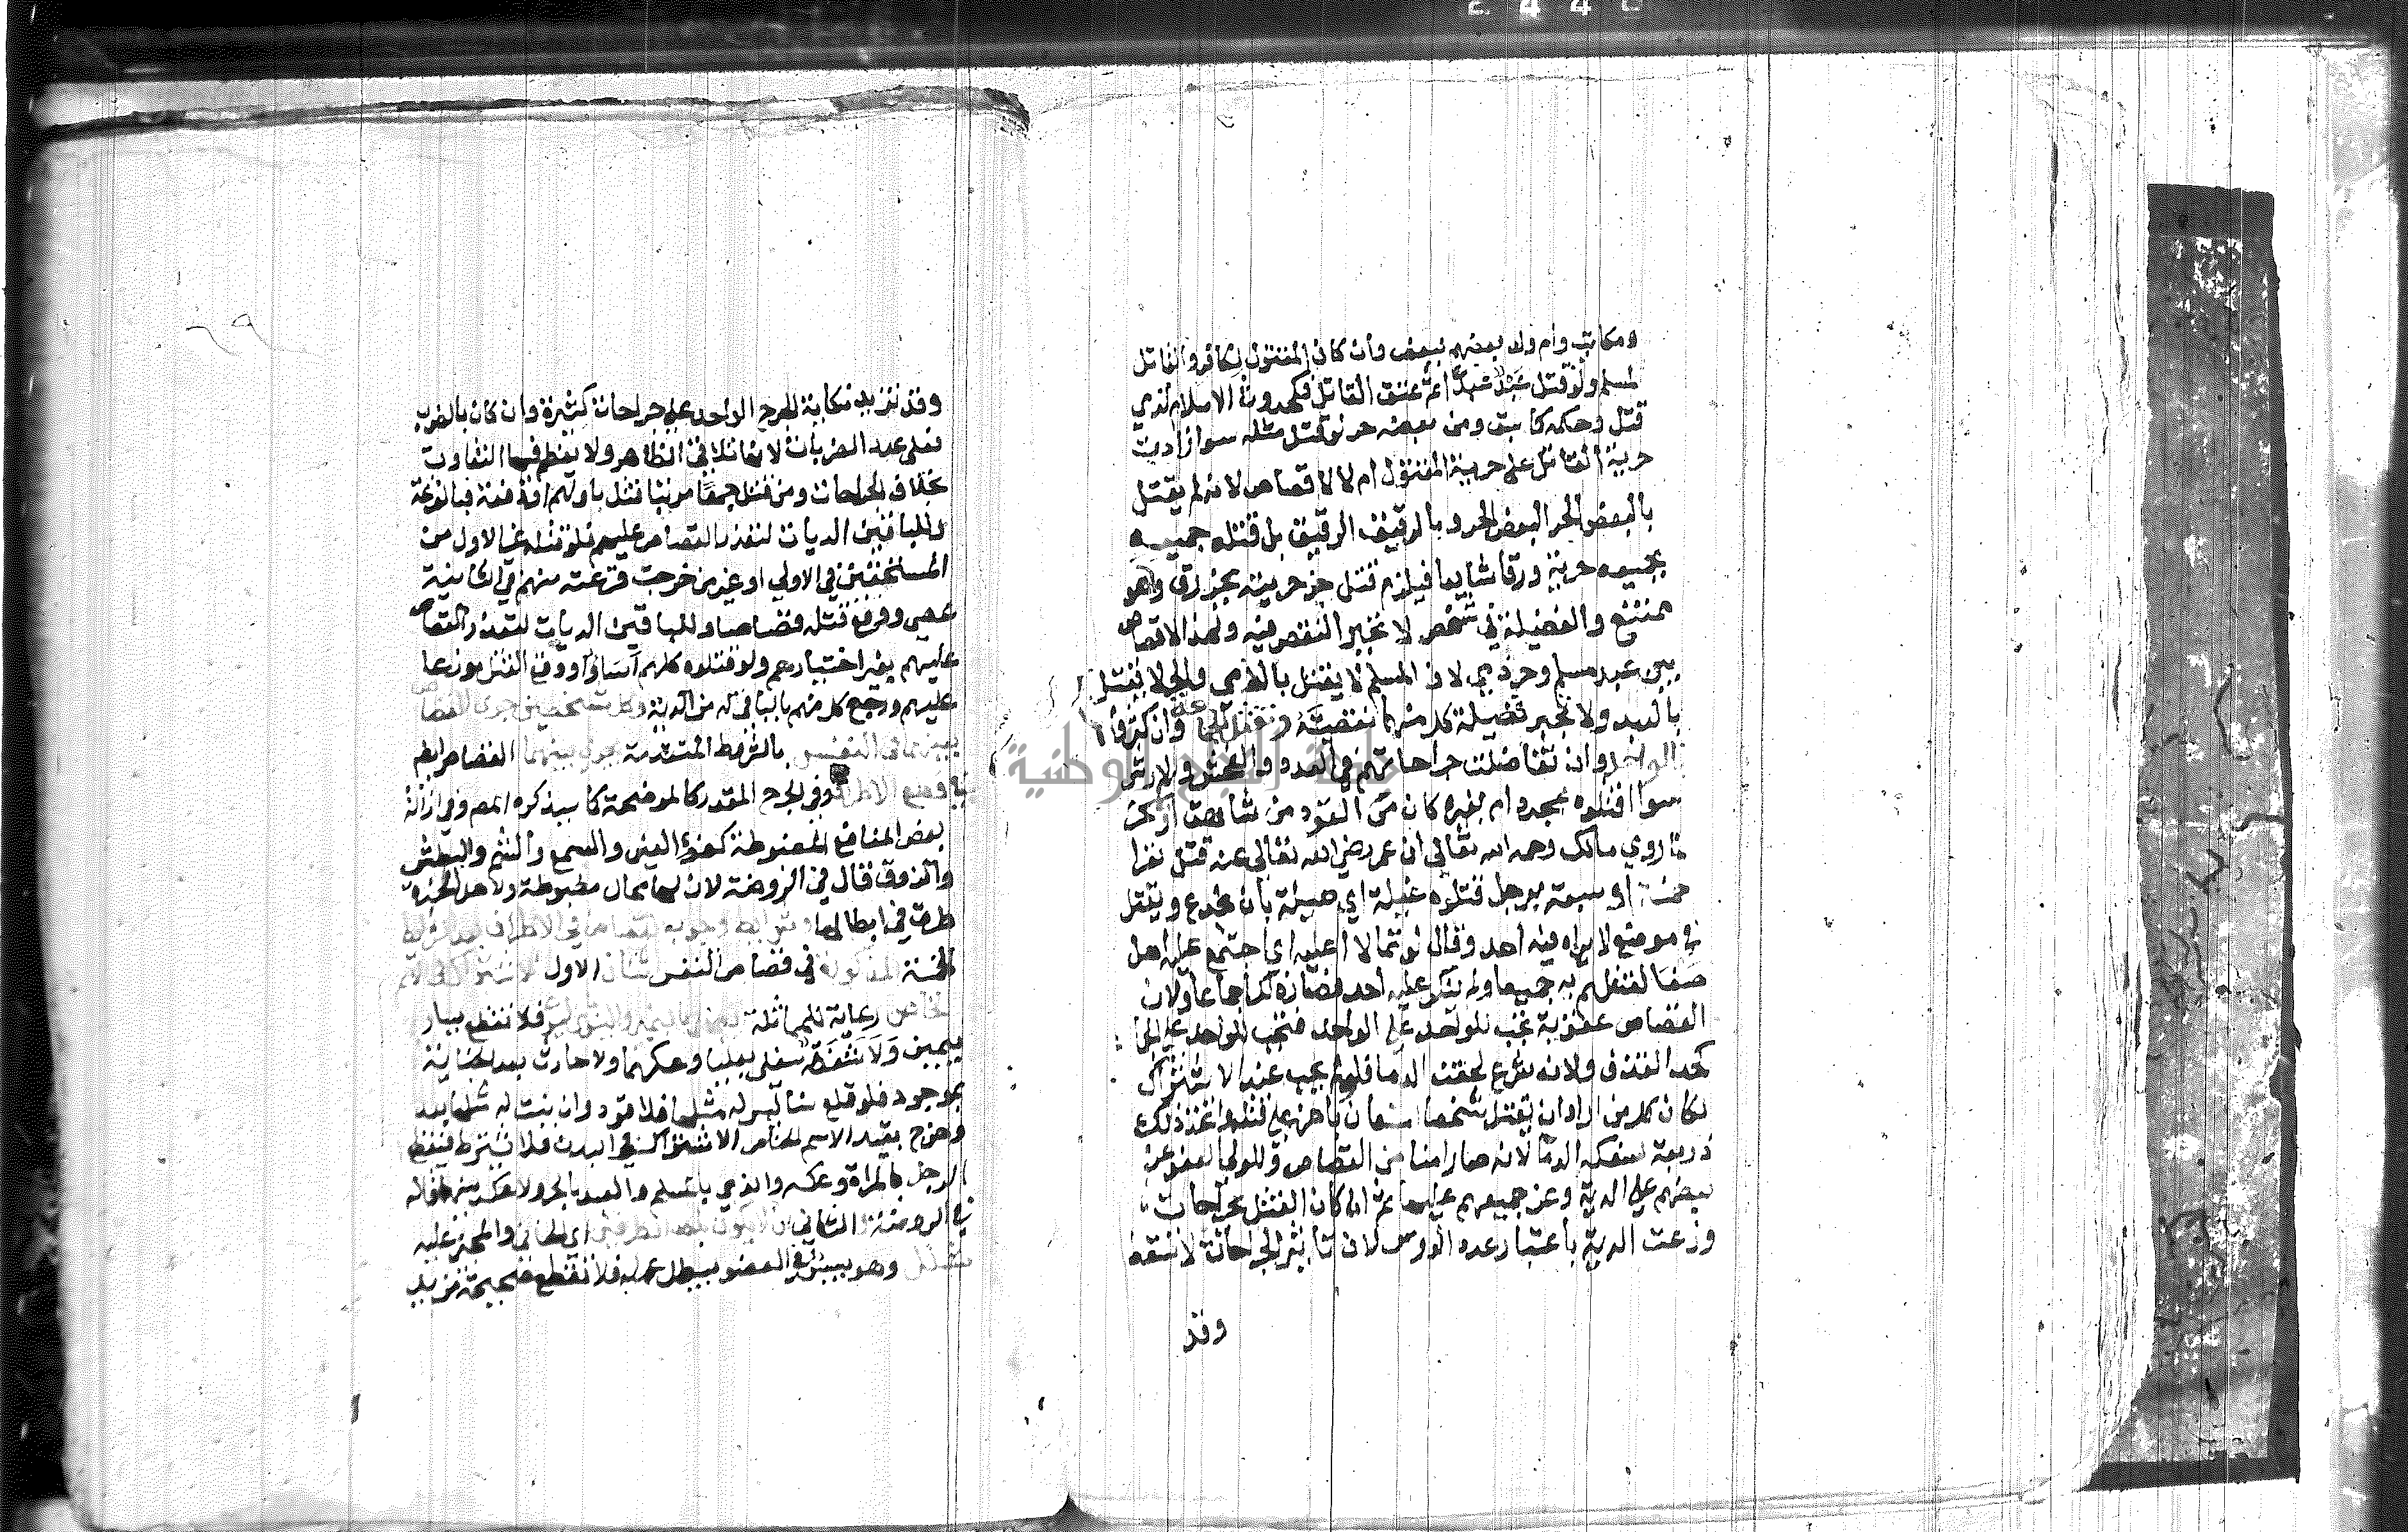 ومكاتب وام ولد بعضهم ببعض وان كان المقتول لكافر والقاتل
لمسلم ولو قتل عبد عبدا ثم عتق القاتل فكحدوث الاسلام لذمي
قتل وحكمه كما سبق ومن بعضه حر لو قتل مثله سوا زادت
حرية القاتل على حرية المقتول ام لا لا قصاص لانه لم يقتل
بالبعض الحر البعض الحر وبالرقيق الرقيق بل قتله جميعه
بجميعه حرية ورقا شايعا فيلزم قتل جز حرية بجز رق وهو
ممتنع والفضيلة في شخص لا تجبر النقص فيه ولهذا لا قصاص
بين عبد مسلم وحر ذمي لان المسلم لا يقتل بالذمي والحر لا يقتل
بالعبد ولا تجبر فضيلة كل منهما نقيصته وتقتل الجماعة وان كثروا
بالواحد وان تفاضلت جراحاتهم في العدد والفحش والارش
سوا اقتلوه بمحدد ام بغيره كان
ما روي مالك رحمه الله تعالى ان عمر رضي الله تعالى عنه قتل نفرا
خمسة او سبعة برجل قتلوه غيلة اي حيلة بان يخدع ويقتل
في موضع لا يراه فيه احد وقال لو تمالا عليه اي اجتمع عليه اهل
صنعا لقتلتهم به جميعا ولم ينكر عليه احد فصار ذلك اجماعا ولان
القصاص عقوبة تجب للواحد على الواحد فتجب للواحد على الجماعة
كحد القذف ولانه شرع لحقن الدما فلو لم يجب عند الاشتراك
لكان كل من اراد ان يقتل شخصا استعان باخر على قتله واتخذ ذلك
ذريعة لسفك الدما لانه صار امنا من القصاص وللولي العفو عن
بعضهم على الدية وعن جميعهم عليها ثم ان كان القتل بجراحات
وزعت الدية باعتبار عدد الروس لان تاثير الجراحات لا ينضبط
وقد
٦٩
وقد تزيد نكاية الجرح الواحد على جراحات كثيرة وان كان بالضرب
فعلى عدد الضربات لانها تلاقي الظاهر ولا يعظم فيها التفاوت
بخلاف الجراحات ومن قتل جمعا مرتبا قتل باولهم او دفعة فبالقرعة
وللباقين الديات لتعذر القصاص عليهم فلو قتله غير الاول من
المستحقين في الاولى او غير من خرجت قرعته منهم في الثانية
عصى ووقع قتله قصاصا وللباقين الديات لتعذر القصاص
عليهم بغير اختيارهم ولو قتلوه كلهم اساؤا ووقع القتل موزعا
عليهم ورجع كل منهم بالباقي له من الدية وكل شخصين جرى القصاص
بينهما في النفس بالشرط المتقدمة يجري بينهما القصاص ايضا
في قطع الاطراف وفي الجرح المقدر كالموضحة كما سيذكره المصـ وفي ازالة
بعض المنافع المضبوطة كضوء العين والسمع والشم والبطش
والذوق قال في الروضة لان لها محال مضبوطة ولاهل الخبرة
طرق في ابطالها وشرايط وجوب القصاص في الاطراف بعد الشرايط
الخمسة المذكورة في قصاص النفس شيئان الاول الاشتراك في الاسم
الخاص رعاية للمماثلة اليمنى باليمنى واليسرى باليسرى فلا تقطع يسار
بيمين ولا شفة سفلى بعليا وعكسهما ولا حادث بعد الجناية
بموجود فلو قلع سنا ليس له مثلها فلا قود وان نبت له مثلها بعد
وخرج بقيد الاسم الخاص الاشتراك في البدن فلا يشترط فيقطع
الرجل بالمراة وعكسه والذمي بالمسلم والعبد بالحر ولا عكس فيهما قاله
في الروضة والثاني ان لا يكون باحد الطرفين اي الجاني والمجني عليه
شلل وهو يبس في العضو يبطل عمله فلا تقطع صحيحة من يد